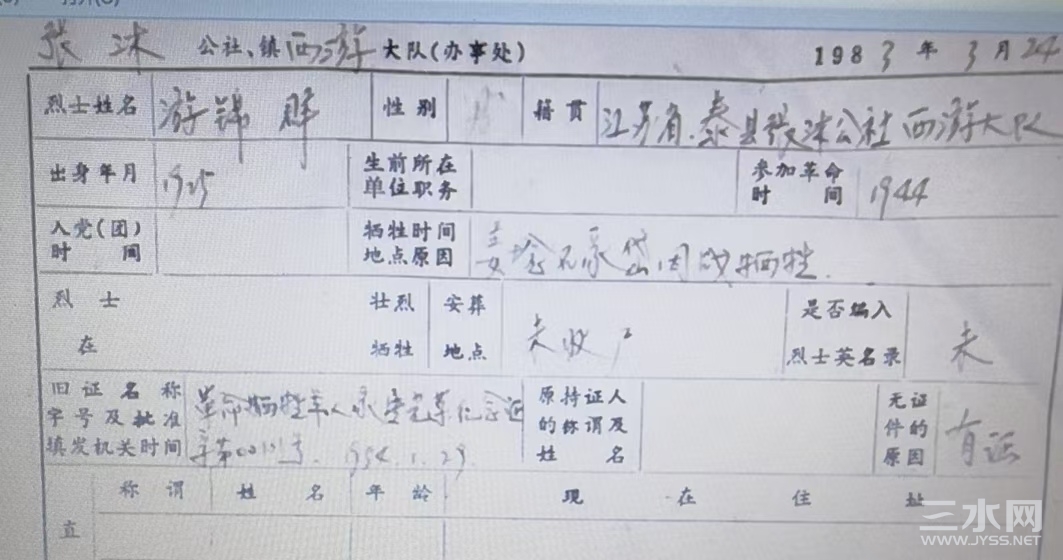 张沐 公社、镇 西游 大队(办事处) 1983年3月24
烈士姓名 游锦群 性别 籍贯 江苏省.泰县张沐公社西游大队
出身年月 1925 生前所在单位职务 参加革命时间 1944
入党(团)时间 牺牲时间地点原因 姜 因战牺牲.
烈士在 壮烈牺牲 安葬地点 未收尸 是否编入烈士英名录 未
旧证名称字号及批准填发机关时间 革命牺牲军人家 纪念证
字第 号. 1954.1.29. 原持证人的称谓及姓名 无证件的原因 有证
称谓 姓名 年龄 现在住址
直
三水网
WWW.JYSS.NET